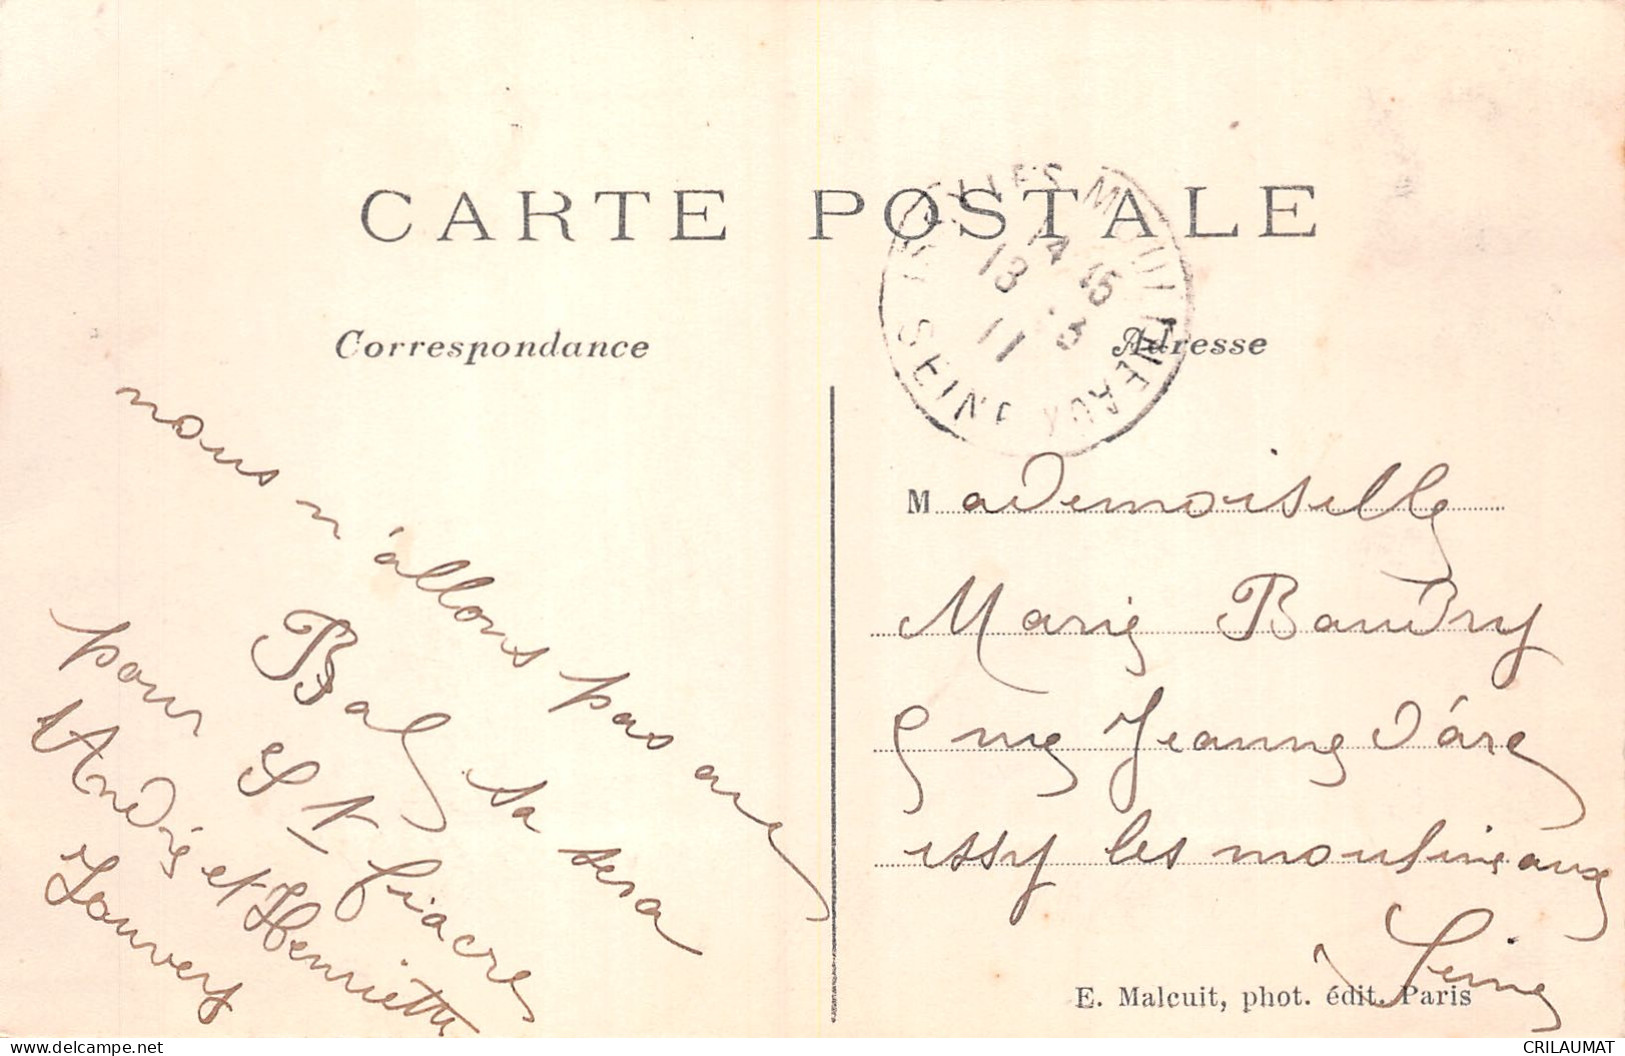 CARTE POSTALE
Correspondance
Adresse
ISSY LES MOULINEAUX
SEINE
14 15
13 3
11
nous n'allons pas au
Bal sa sera
pour St fiacre
André et Henriette
Mademoiselle
Marie Baudry
rue Jeanne d'arc
issy les moulineaux
Seine
E. Malcuit, phot. édit. Paris
delcampe.net
CRILAUMAT